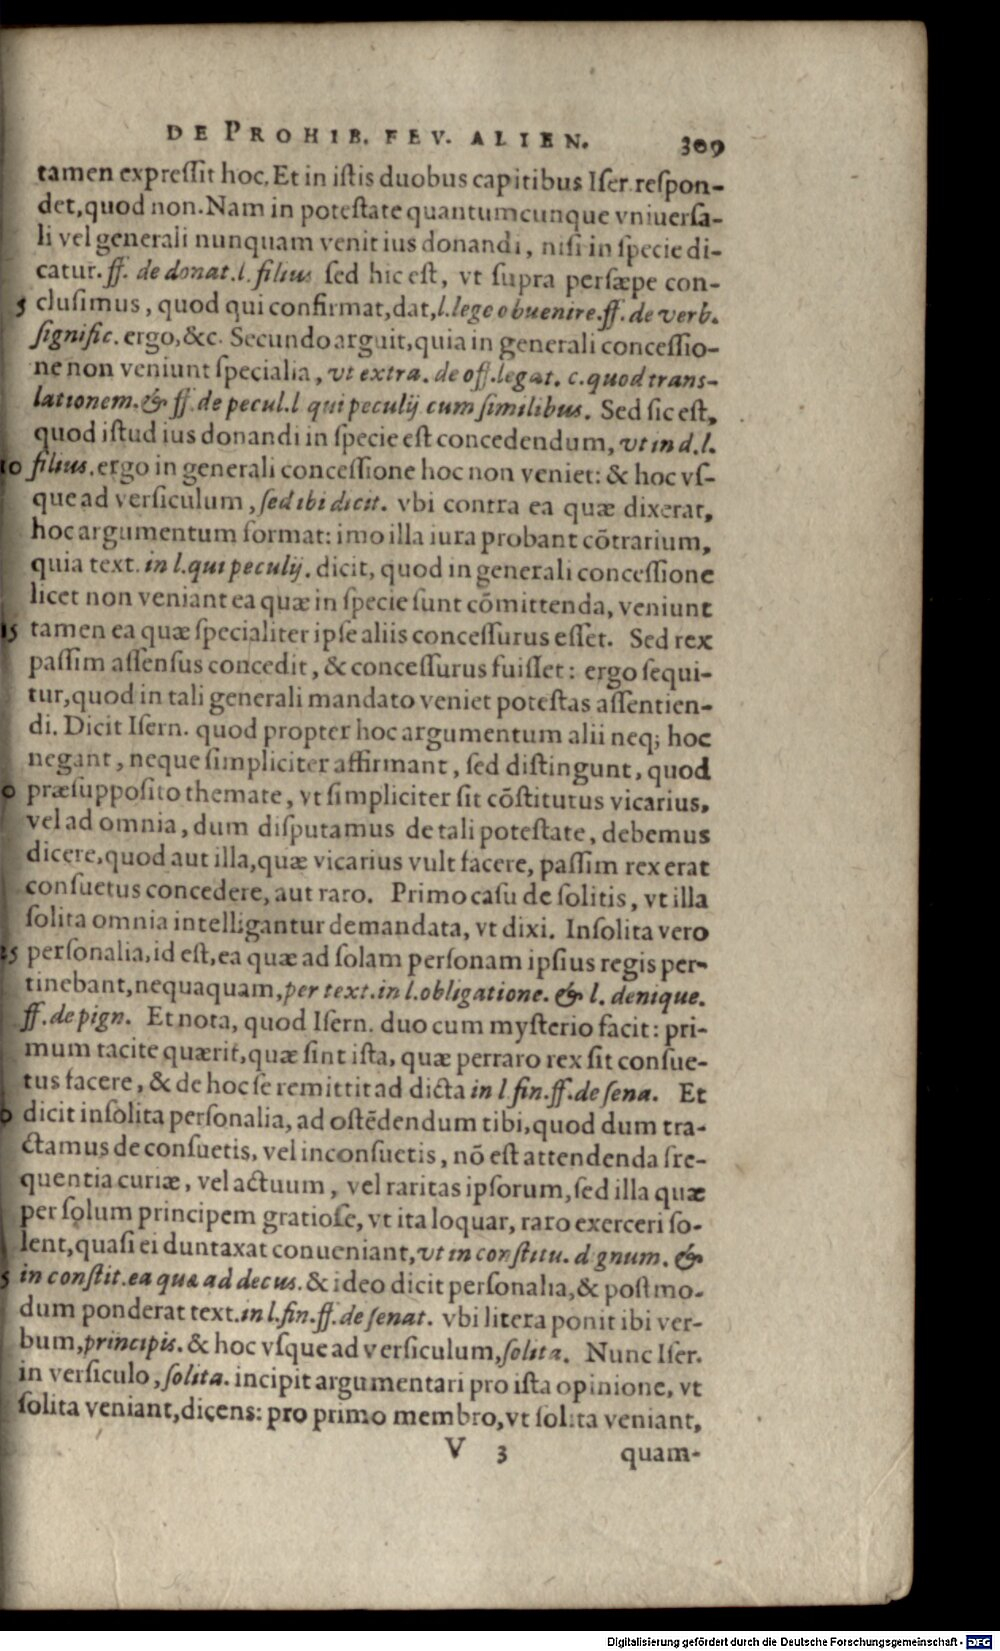 DE PROHIB. FEV. ALIEN. 309
tamen expreſſit hoc. Et in iſtis duobus capitibus Iſer. reſpon-
det, quod non. Nam in poteſtate quantumcunque vniuerſa-
li vel generali nunquam venit ius donandi, niſi in ſpecie di-
catur. ff. de donat. l. filius sed hic eſt, vt ſupra perſæpe con-
5 cluſimus, quod qui confirmat, dat, l. lege obuenire. ff. de verb.
ſignific. ergo, &c. Secundo arguit, quia in generali conceſſio-
ne non veniunt ſpecialia, vt extra. de off. legat. c. quod trans-
lationem. & ff. de pecul. l qui peculij cum ſimilibus. Sed ſic eſt,
quod iſtud ius donandi in ſpecie eſt concedendum, vt in d. l.
10 filius. ergo in generali conceſſione hoc non veniet: & hoc vſ-
que ad verſiculum, ſed ibi dicit. vbi contra ea quæ dixerat,
hoc argumentum format: imo illa iura probant cõtrarium,
quia text. in l. qui peculij. dicit, quod in generali conceſſione
licet non veniant ea quæ in ſpecie ſunt cõmittenda, veniunt
15 tamen ea quæ ſpecialiter ipſe aliis conceſſurus eſſet. Sed rex
paſſim aſſenſus concedit, & conceſſurus fuiſſet: ergo ſequi-
tur, quod in tali generali mandato veniet poteſtas aſſentien-
di. Dicit Iſern. quod propter hoc argumentum alii neq; hoc
negant, neque ſimpliciter affirmant, ſed diſtingunt, quod
0 præſuppoſito themate, vt ſimpliciter ſit cõſtitutus vicarius,
vel ad omnia, dum diſputamus de tali poteſtate, debemus
dicere, quod aut illa, quæ vicarius vult facere, paſſim rex erat
conſuetus concedere, aut raro. Primo caſu de ſolitis, vt illa
ſolita omnia intelligantur demandata, vt dixi. Inſolita vero
25 perſonalia, id eſt, ea quæ ad ſolam perſonam ipſius regis per-
tinebant, nequaquam, per text. in l. obligatione. & l. denique.
ff. de pign. Et nota, quod Iſern. duo cum myſterio facit: pri-
mum tacite quærit, quæ ſint iſta, quæ perraro rex ſit conſue-
tus facere, & de hoc ſe remittit ad dicta in l fin. ff. de ſena. Et
0 dicit inſolita perſonalia, ad oſtẽdendum tibi, quod dum tra-
ctamus de conſuetis, vel inconſuetis, nõ eſt attendenda fre-
quentia curiæ, vel actuum, vel raritas ipſorum, ſed illa quæ
per ſolum principem gratioſe, vt ita loquar, raro exerceri ſo-
lent, quaſi ei duntaxat conueniant, vt in conſtitu. dignum. &
5 in conſtit. ea quæ ad decus. & ideo dicit perſonalia, & poſtmo-
dum ponderat text. in l. fin. ff. de ſenat. vbi litera ponit ibi ver-
bum, principis. & hoc vſque ad verſiculum, ſolita. Nunc Iſer.
in verſiculo, ſolita. incipit argumentari pro iſta opinione, vt
ſolita veniant, dicens: pro primo membro, vt ſolita veniant,
V 3 quam-
Digitalisierung gefördert durch die Deutsche Forschungsgemeinschaft - DFG